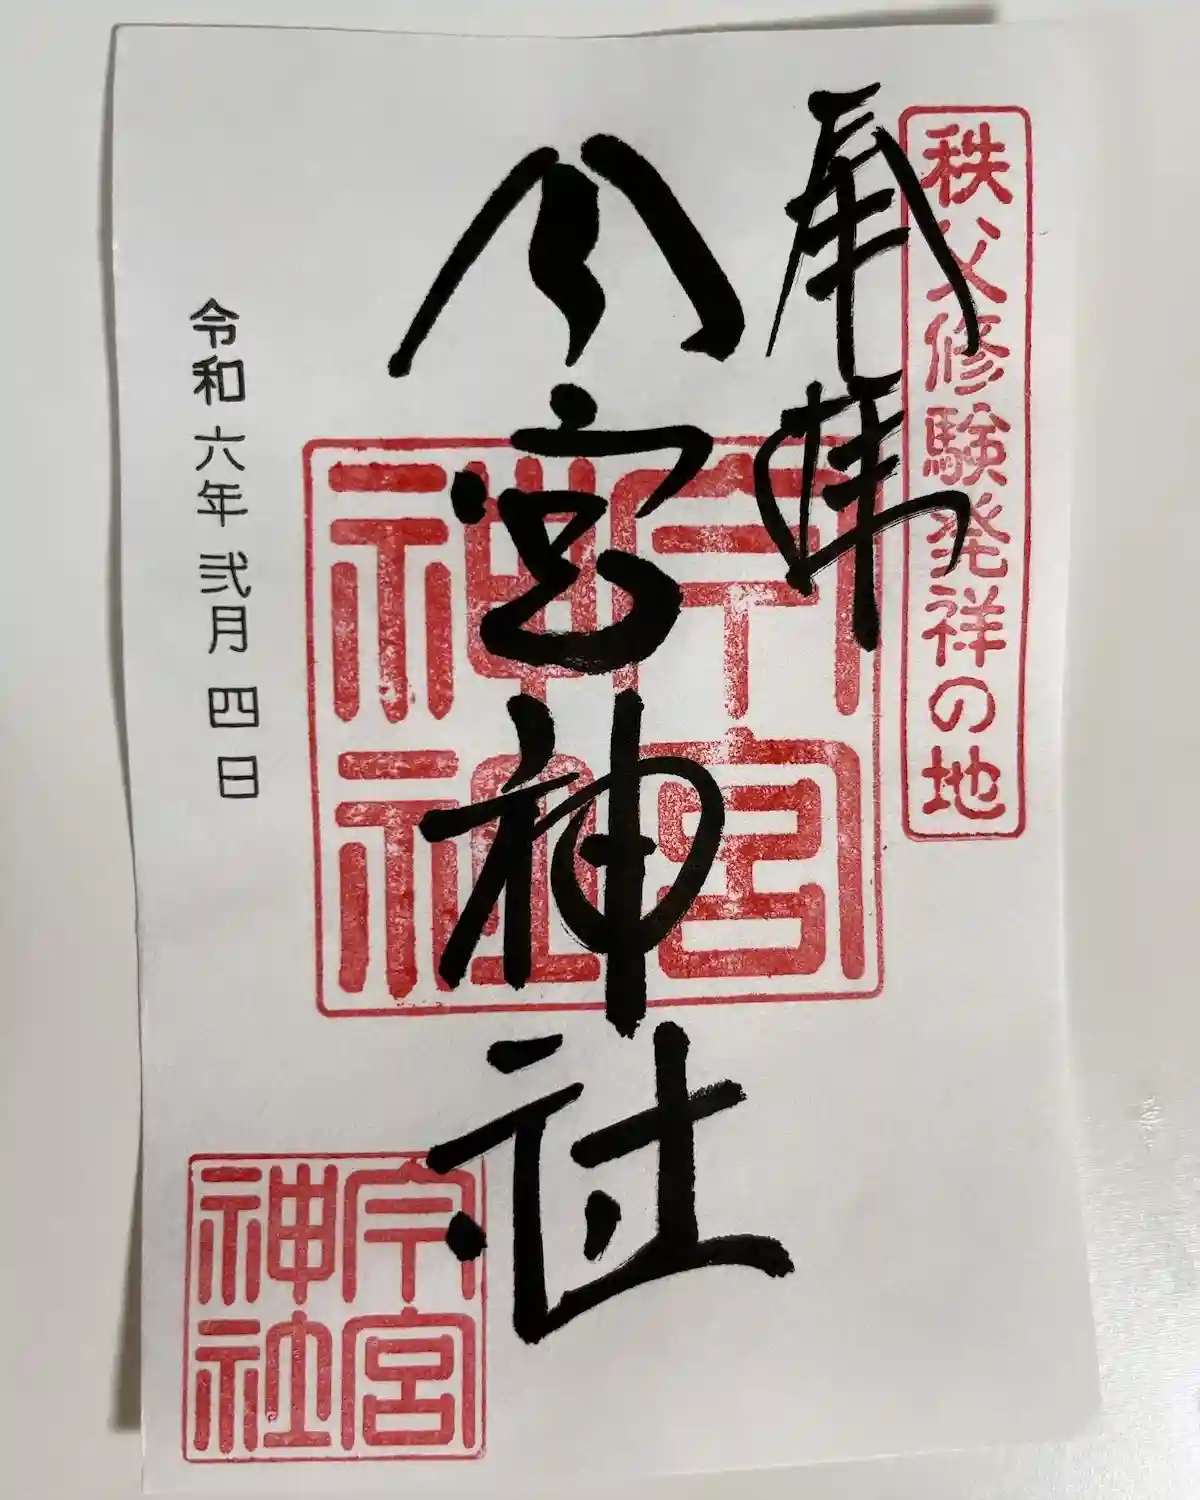 秩父修験発祥の地
奉拝
今宮神社
今宮
神社
令和六年弐月四日
今宮
神社